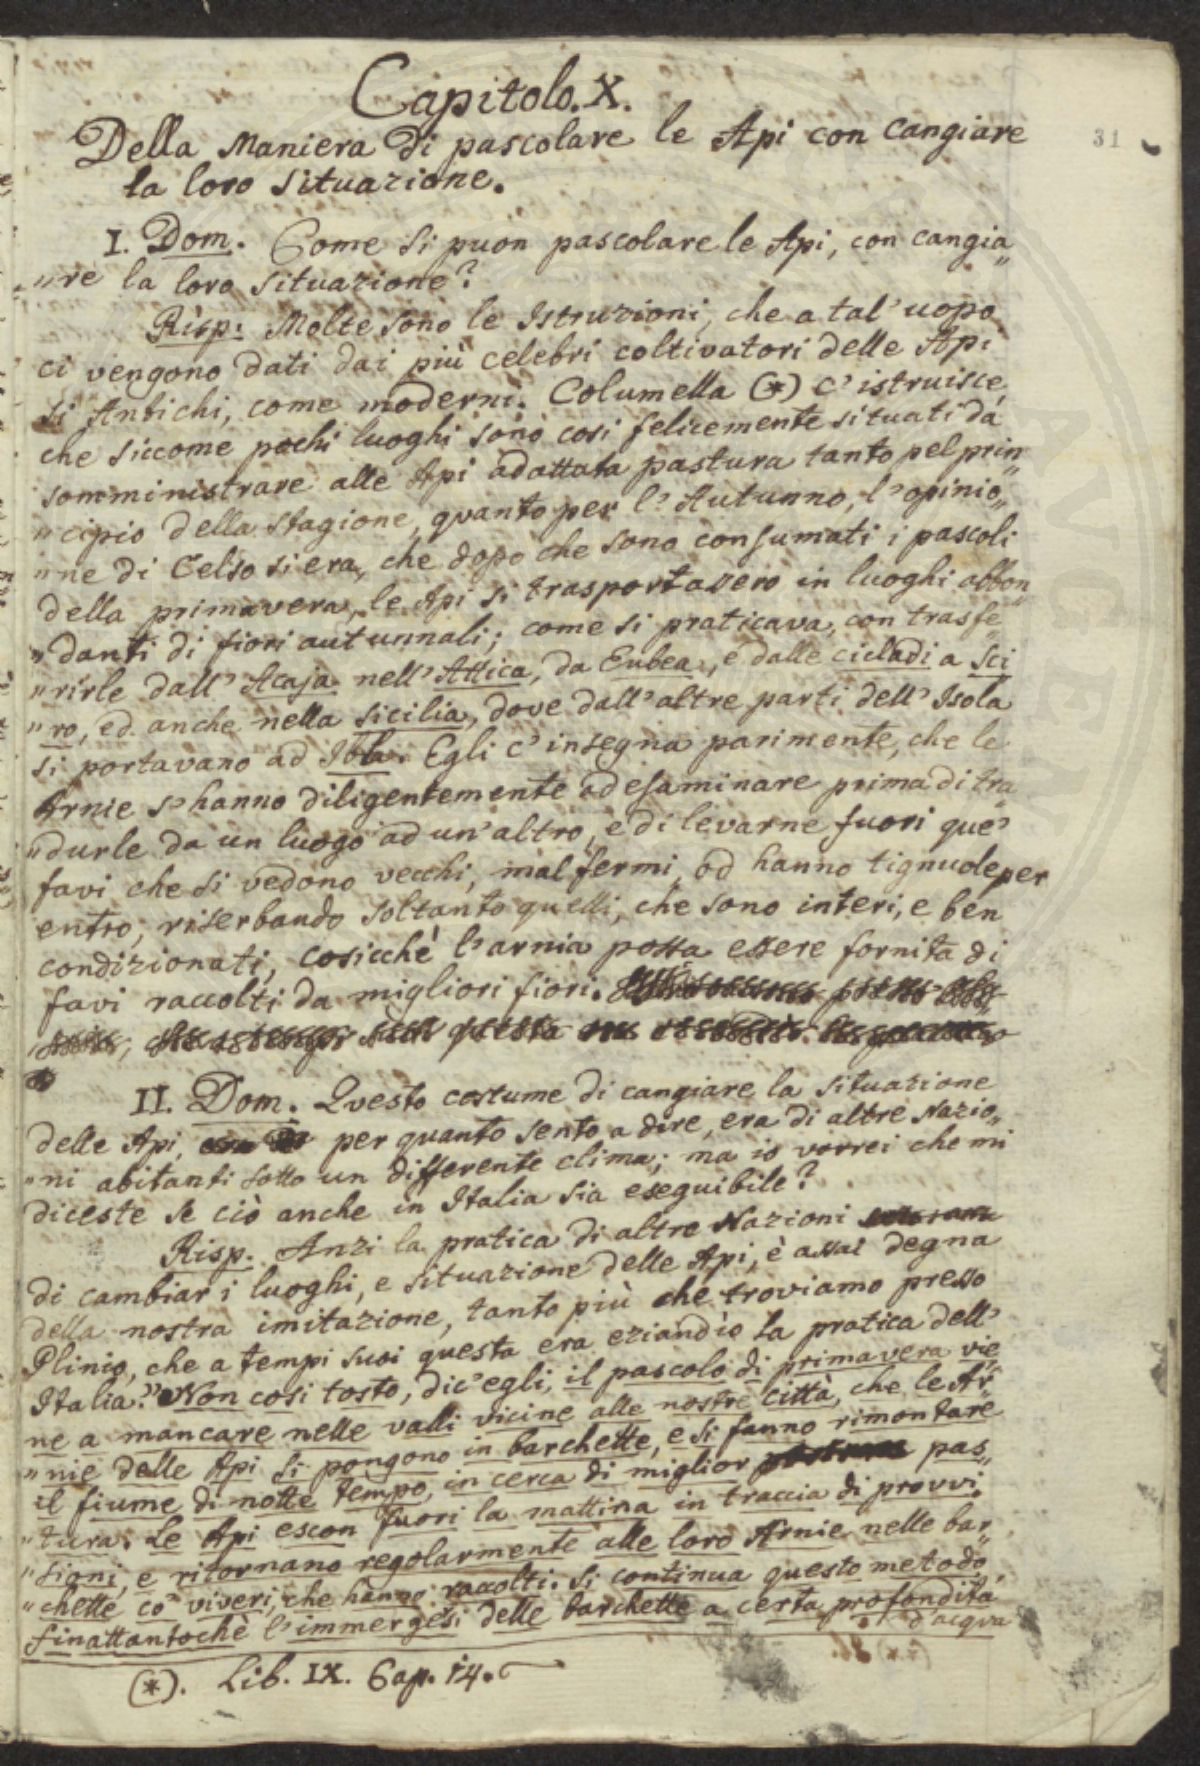 31
Capitolo. X.
Della Maniera di pascolare le Api con cangiare
la loro situazione.
I. Dom. Come si puon pascolare le Api, con cangia„
„re la loro situazione?
Risp: Molte sono le Istruzioni, che a tal' uopo
ci vengono dati dai più celebri coltivatori delle Api
si Antichi, come moderni. Columella (*) c' istruisce,
che siccome pochi luoghi sono cosi felicemente situati da
somministrare alle Api adattata pastura tanto pel prin„
„cipio della stagione, quanto per l' Autunno, l' opinio„
„ne di Celso si era, che dopo che sono consumati i pascoli
della primavera, le Api si trasportassero in luoghi abbon„
„danti di fiori autunnali; come si praticava, con trasfe„
„rirle dall' Acaja nell' Attica, da Eubea, e dalle cicladi a Sci
„ro, ed anche nella Sicilia, dove dall' altre parti dell' Isola
si portavano ad Ibla. Egli c' insegna parimente, che le
Arnie s' hanno diligentemente ad esaminare prima di tra
„durle da un luogo ad un' altro, e di levarne fuori que'
favi che si vedono vecchi, mal fermi, od hanno tignuole per
entro; riserbando soltanto quelli, che sono interi, e ben
condizionati, cosicchè l' arnia possa essere fornita di
favi raccolti da migliori fiori.
II. Dom. Questo costume di cangiare la situazione
delle Api, per quanto sento a dire, era di altre Nazio„
„ni abitanti sotto un differente clima; ma io vorrei che mi
diceste se ciò anche in Italia sia eseguibile?
Risp. Anzi la pratica di altre Nazioni
di cambiar i luoghi, e situazione delle Api, è assai degna
della nostra imitazione, tanto più che troviamo presso
Plinio, che a tempi suoi questa era eziandio la pratica dell'
Italia." Non cosi tosto, dic' egli, il pascolo di primavera vie
ne a mancare nelle valli vicine alle nostre città, che le Ar„
„nie delle Api si pongono in barchette, e si fanno rimontare
il fiume di notte tempo, in cerca di miglior pas„
„tura. Le Api escon fuori la mattina in traccia di provvi„
„sioni, e ritornano regolarmente alle loro Arnie nelle bar„
„chette co' viveri, che hanno raccolti. Si continua questo metodo,
finattantochè l' immergersi delle barchette a certa profondità
d'acqua
(*). Lib. IX. Cap. 14.